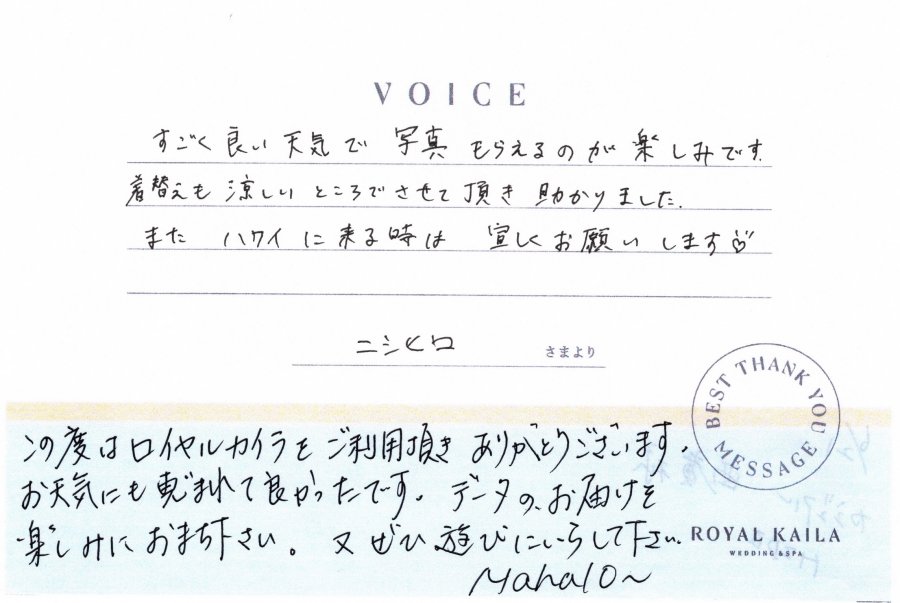 VOICE
すごく良い天気で 写真 もらえるのが 楽しみです.
着替えも 涼しい ところでさせて 頂き 助かりました.
また ハワイに来る時は 宜しくお願いします♡
ニシヒロ さまより
BEST THANK YOU MESSAGE
この度はロイヤルカイラをご利用頂き ありがとうございます.
お天気にも恵まれて良かったです. データの、お届けを
楽しみに おまち下さい。 又 ぜひ 遊びにいらして下さい.
Mahalo~
ROYAL KAILA
WEDDING & SPA